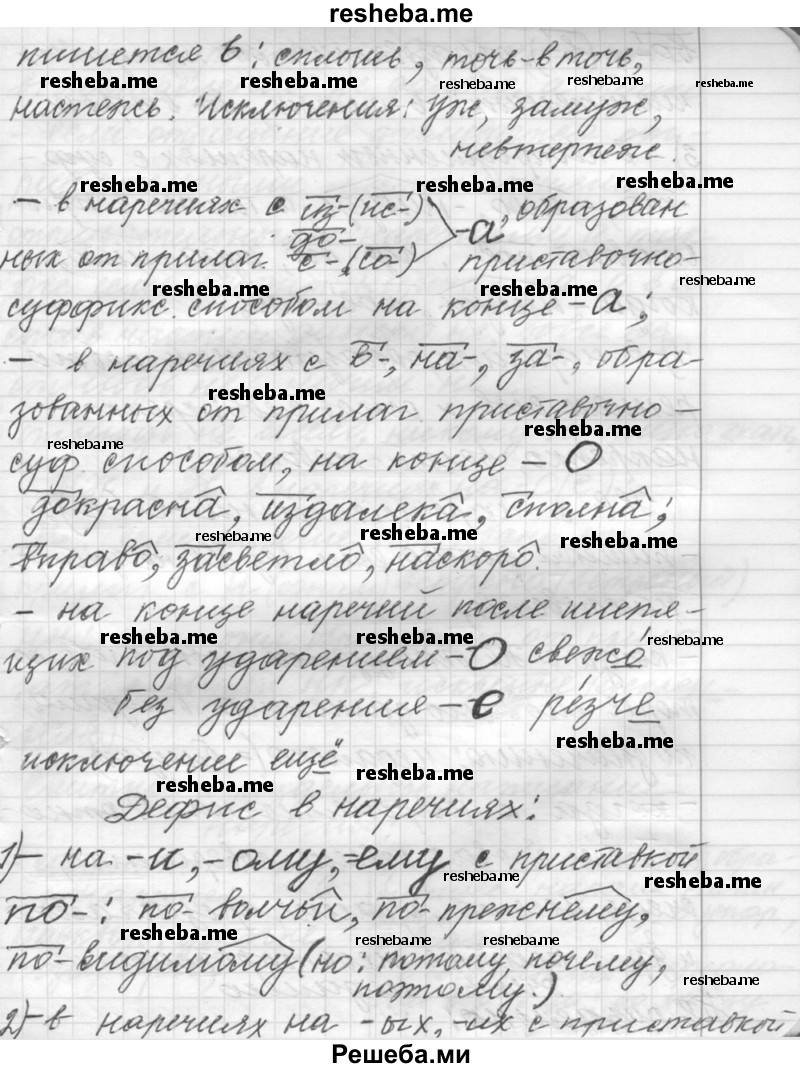 resheba.me
пишется ь: сплошь, точь-в-точь,
resheba.me resheba.me resheba.me resheba.me resheba.me
настежь. Исключения: уж, замуж,
невтерпеж.
resheba.me resheba.me resheba.me
– в наречиях с из-(ис-) -а, образован
до-
ных от прилаг. с-(со-) приставочно-
resheba.me resheba.me resheba.me
суффикс. способом на конце -а;
– в наречиях с в-, на-, за-, обра-
resheba.me
зованных от прилаг. приставочно-
resheba.me resheba.me
суф. способом, на конце – О
докрасна, издалека, сполна;
resheba.me resheba.me resheba.me
вправо, засветло, наскоро.
– на конце наречий после шипя-
resheba.me resheba.me resheba.me
щих под ударением – О свежо
без ударения – е ре́зче
resheba.me
исключение ещё
resheba.me resheba.me
Дефис в наречиях:
1) – на -и, -ому, -ему с приставкой
resheba.me resheba.me
по-: по-волчьи, по-прежнему,
resheba.me resheba.me resheba.me
по-видимому (но: потому, почему,
поэтому.)
resheba.me
2) – в наречиях на -ых, -их с приставкой
Решеба.ми